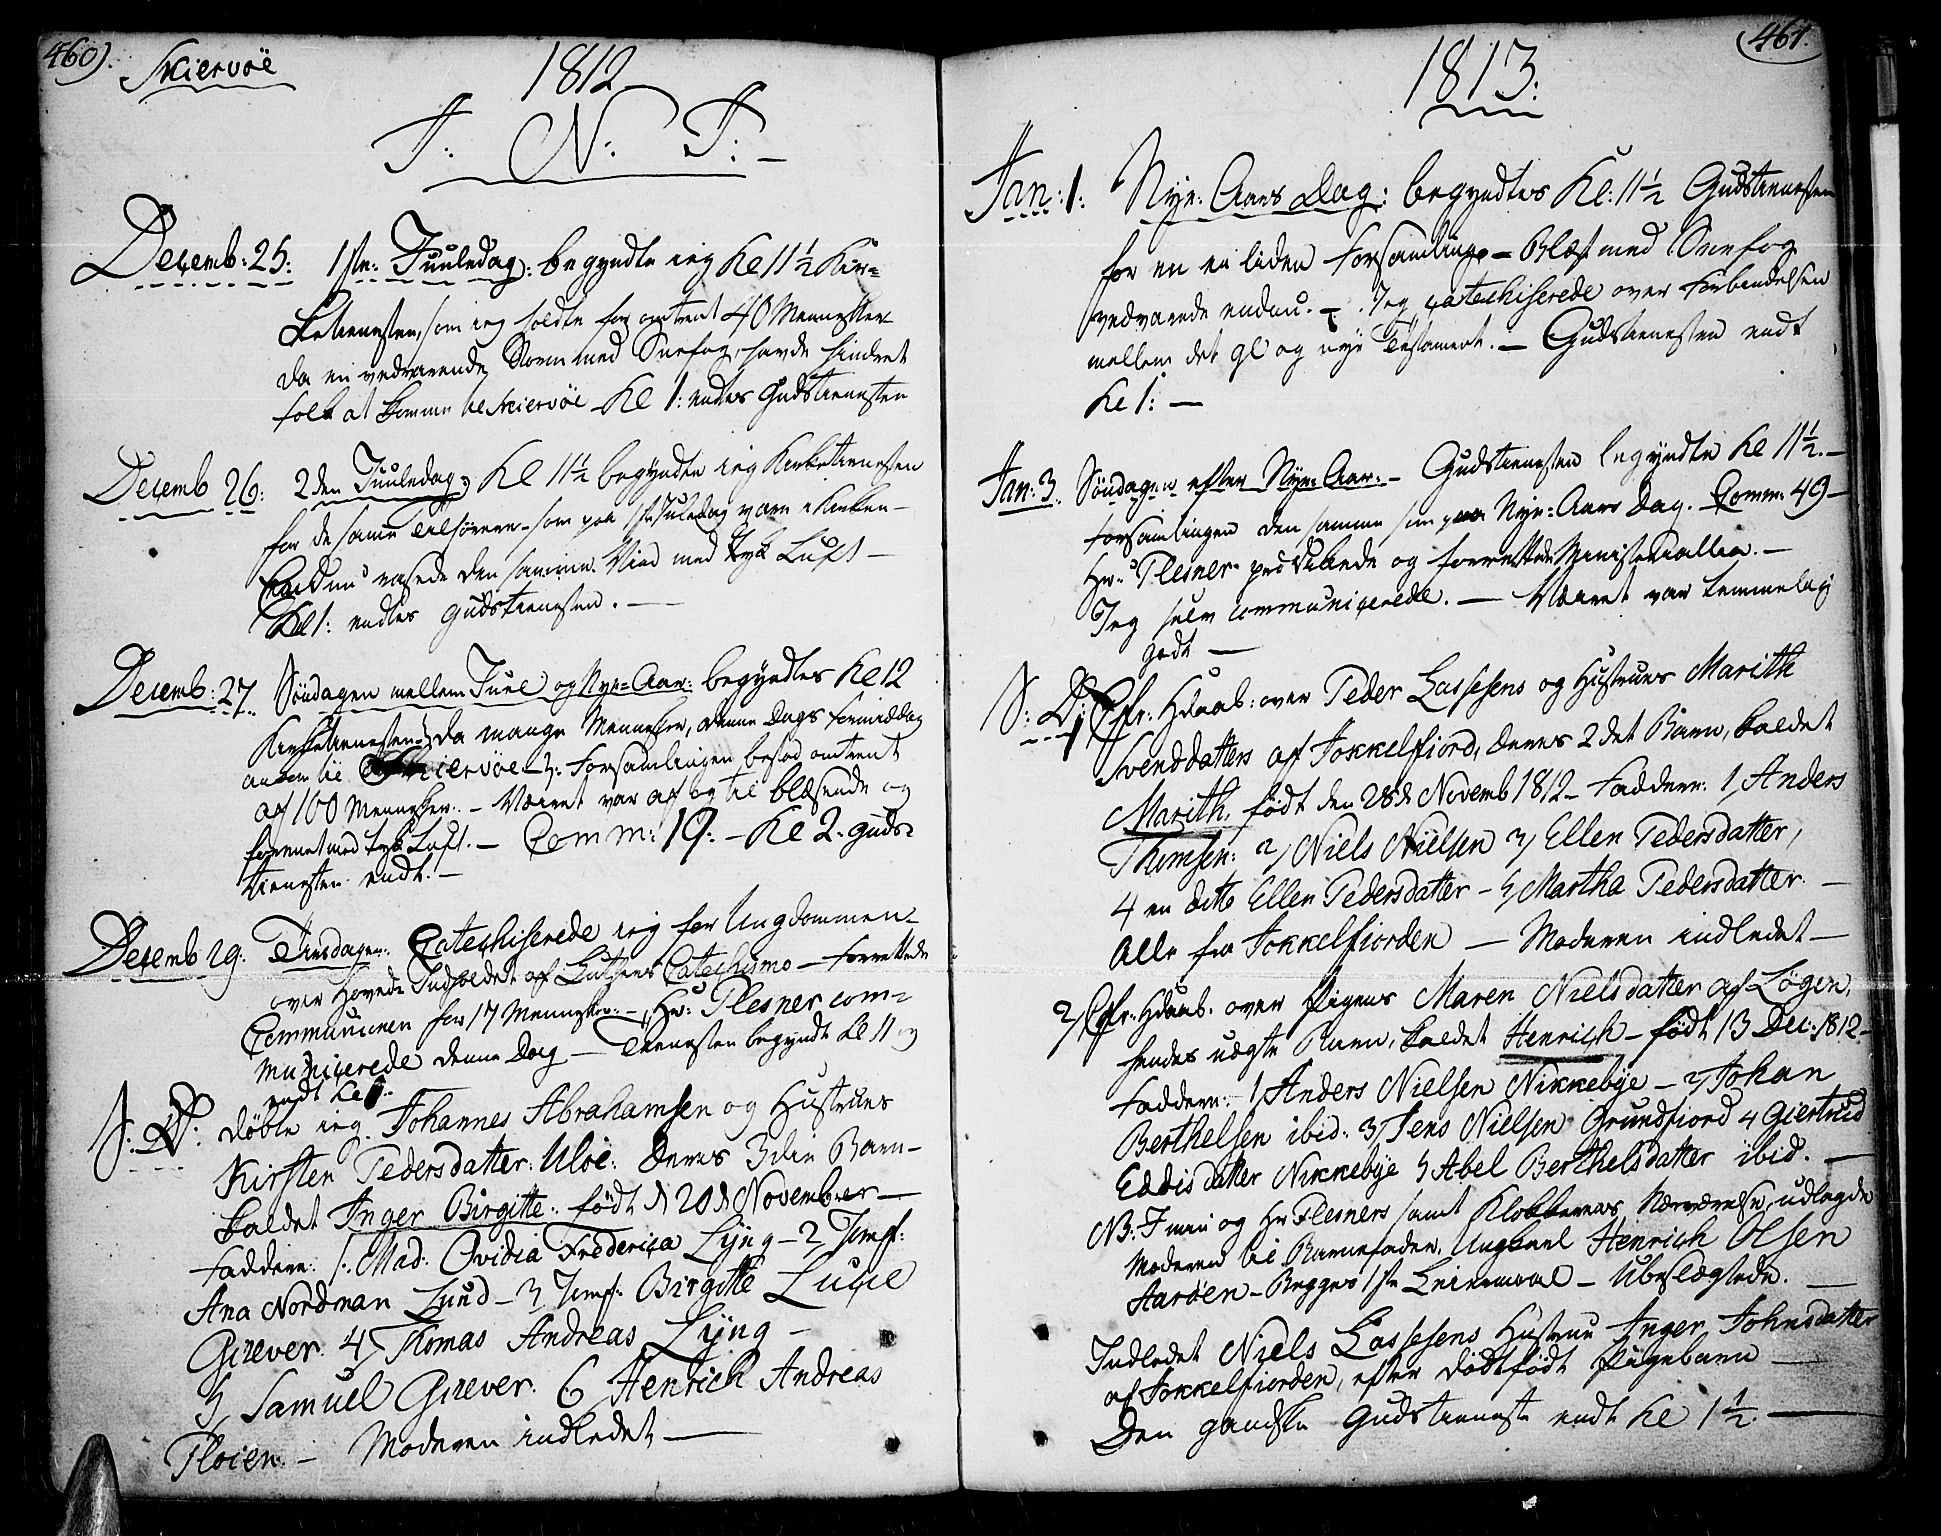 460).
Skiervöe
1812
J: N: J: –
Decemb: 25: 1ste Juuledag: begyndte ieg Kl 11½ Kir=
ketienesten, som ieg holdte for omtrent 40 Mennesker
da en vedvarende Storm med Snefog havde hindret
folk at komme til Skiervöe – Kl 1: endtes Gudstienesten
Decemb 26: 2den Juuledag: Kl 11½ begyndte ieg Kirketienesten
for de samme Tilhörere – som paa 1ste Juledag vare i Kirken –
Endnu rasede den samme Vind med tyk Luft –
Kl 1: endtes gudstienesten. –
Decemb: 27. Söndagen mellem Juul og Nye=Aar: begyndtes Kl 12
Kirketienesten da mange Mennesker, denne Dags Formiddag
ankom til Skiervöe – Forsamlingen bestod omtrent
af 100 Mennesker. – Væiret var af og til blæsende og
forenet med tyk Luft. – Comm: 19. – Kl 2. guds=
tienesten endt. –
Decemb 29. Tiirsdagen: Catechiserede ieg for Ungdommen –
over Hoved Indholdet af Luthers Catechismo – forrettede
Communionen for 17 Mennesker. – Hr: Plesner com=
municerede denne Dag – Tienesten begyndt Kl 11 og
endt Kl 1.
S: D: döbte ieg Johannes Abrahamsen og Hustrues
Kirsten Pedersdatter: Ulöe: deres 3die Barn –
kaldet Inger Birgitte: födt d 20d November –
Faddere: 1. Mad: Ovidia Frederica Lÿng – 2 Jomf:
Ana Nordman Lund – 3 Jomf: Birgitte Lucie
Gizever. 4, Thomas Andreas Lÿng –
5, Samuel Gizever. 6 Henrich Andreas
Floien. – Moderen indledet –
461.
1813:
Jan: 1: Nye: Aars Dag: begyndtes Kl: 11½ Gudstienesten
for en en liden Forsamling – Blæst med Snefog
vedvarede endnu. – Jeg catechiserede over Forbindelsen
mellem det gl og nye Testament. – Gudstienesten endt
Kl 1: –
Jan: 3. Söndagen efter Nye: Aar. – Gudstienesten begyndte Kl 11½. –
Forsamlingen den samme som paa Nye: Aars Dag. Comm: 49 –
Hr: Plesner prædikede og forrettede Ministerialia. –
Jeg selv communicerede. – Væiret var temmelig
godt –
S: D: 1, Cfr: Hdaab: over Peder Lassesens og Hustrues Marith
Svendsdatters af Jökkelfiord, deres 2det Barn, kaldet
Marith, födt den 28d Novemb 1812 – Faddere: 1, Anders
Thomsen: 2, Niels Nielsen 3, Ellen Pedersdatter,
4 en ditto Ellen Pedersdatter – 5, Martha Pedersdatter. –
Alle fra Jökkelfiorden – Moderen indledet –
2, Cfr: Hdaab. over Pigens Maren Nielsdatter af Lögen,
hendes uægte Barn, kaldet Henrich – födt 13 Dec: 1812 –
Faddere: 1, Anders Nielsen Nikkebye – 2, Johan
Berthelsen ibid: 3, Jens Nielsen Grundfiord 4 Giertrud
Eddisdatter Nikkebye 5 Abel Berthelsdatter ibid. –
NB: I min og Hr Plesners samt Klokkerens Nærværelse, udlagde
Moderen til Barnefader, Ungkarl Henrich Olsen
Aaröen – Begges 1ste Leiermaal – Ubeslægtede. –
Indledet Niels Lassesens Hustrue Inger Johnsdatter
af Jökkelfiorden, efter dödfödt Pigebarn –
Den gandske Gudstieneste endt Kl 1½. –